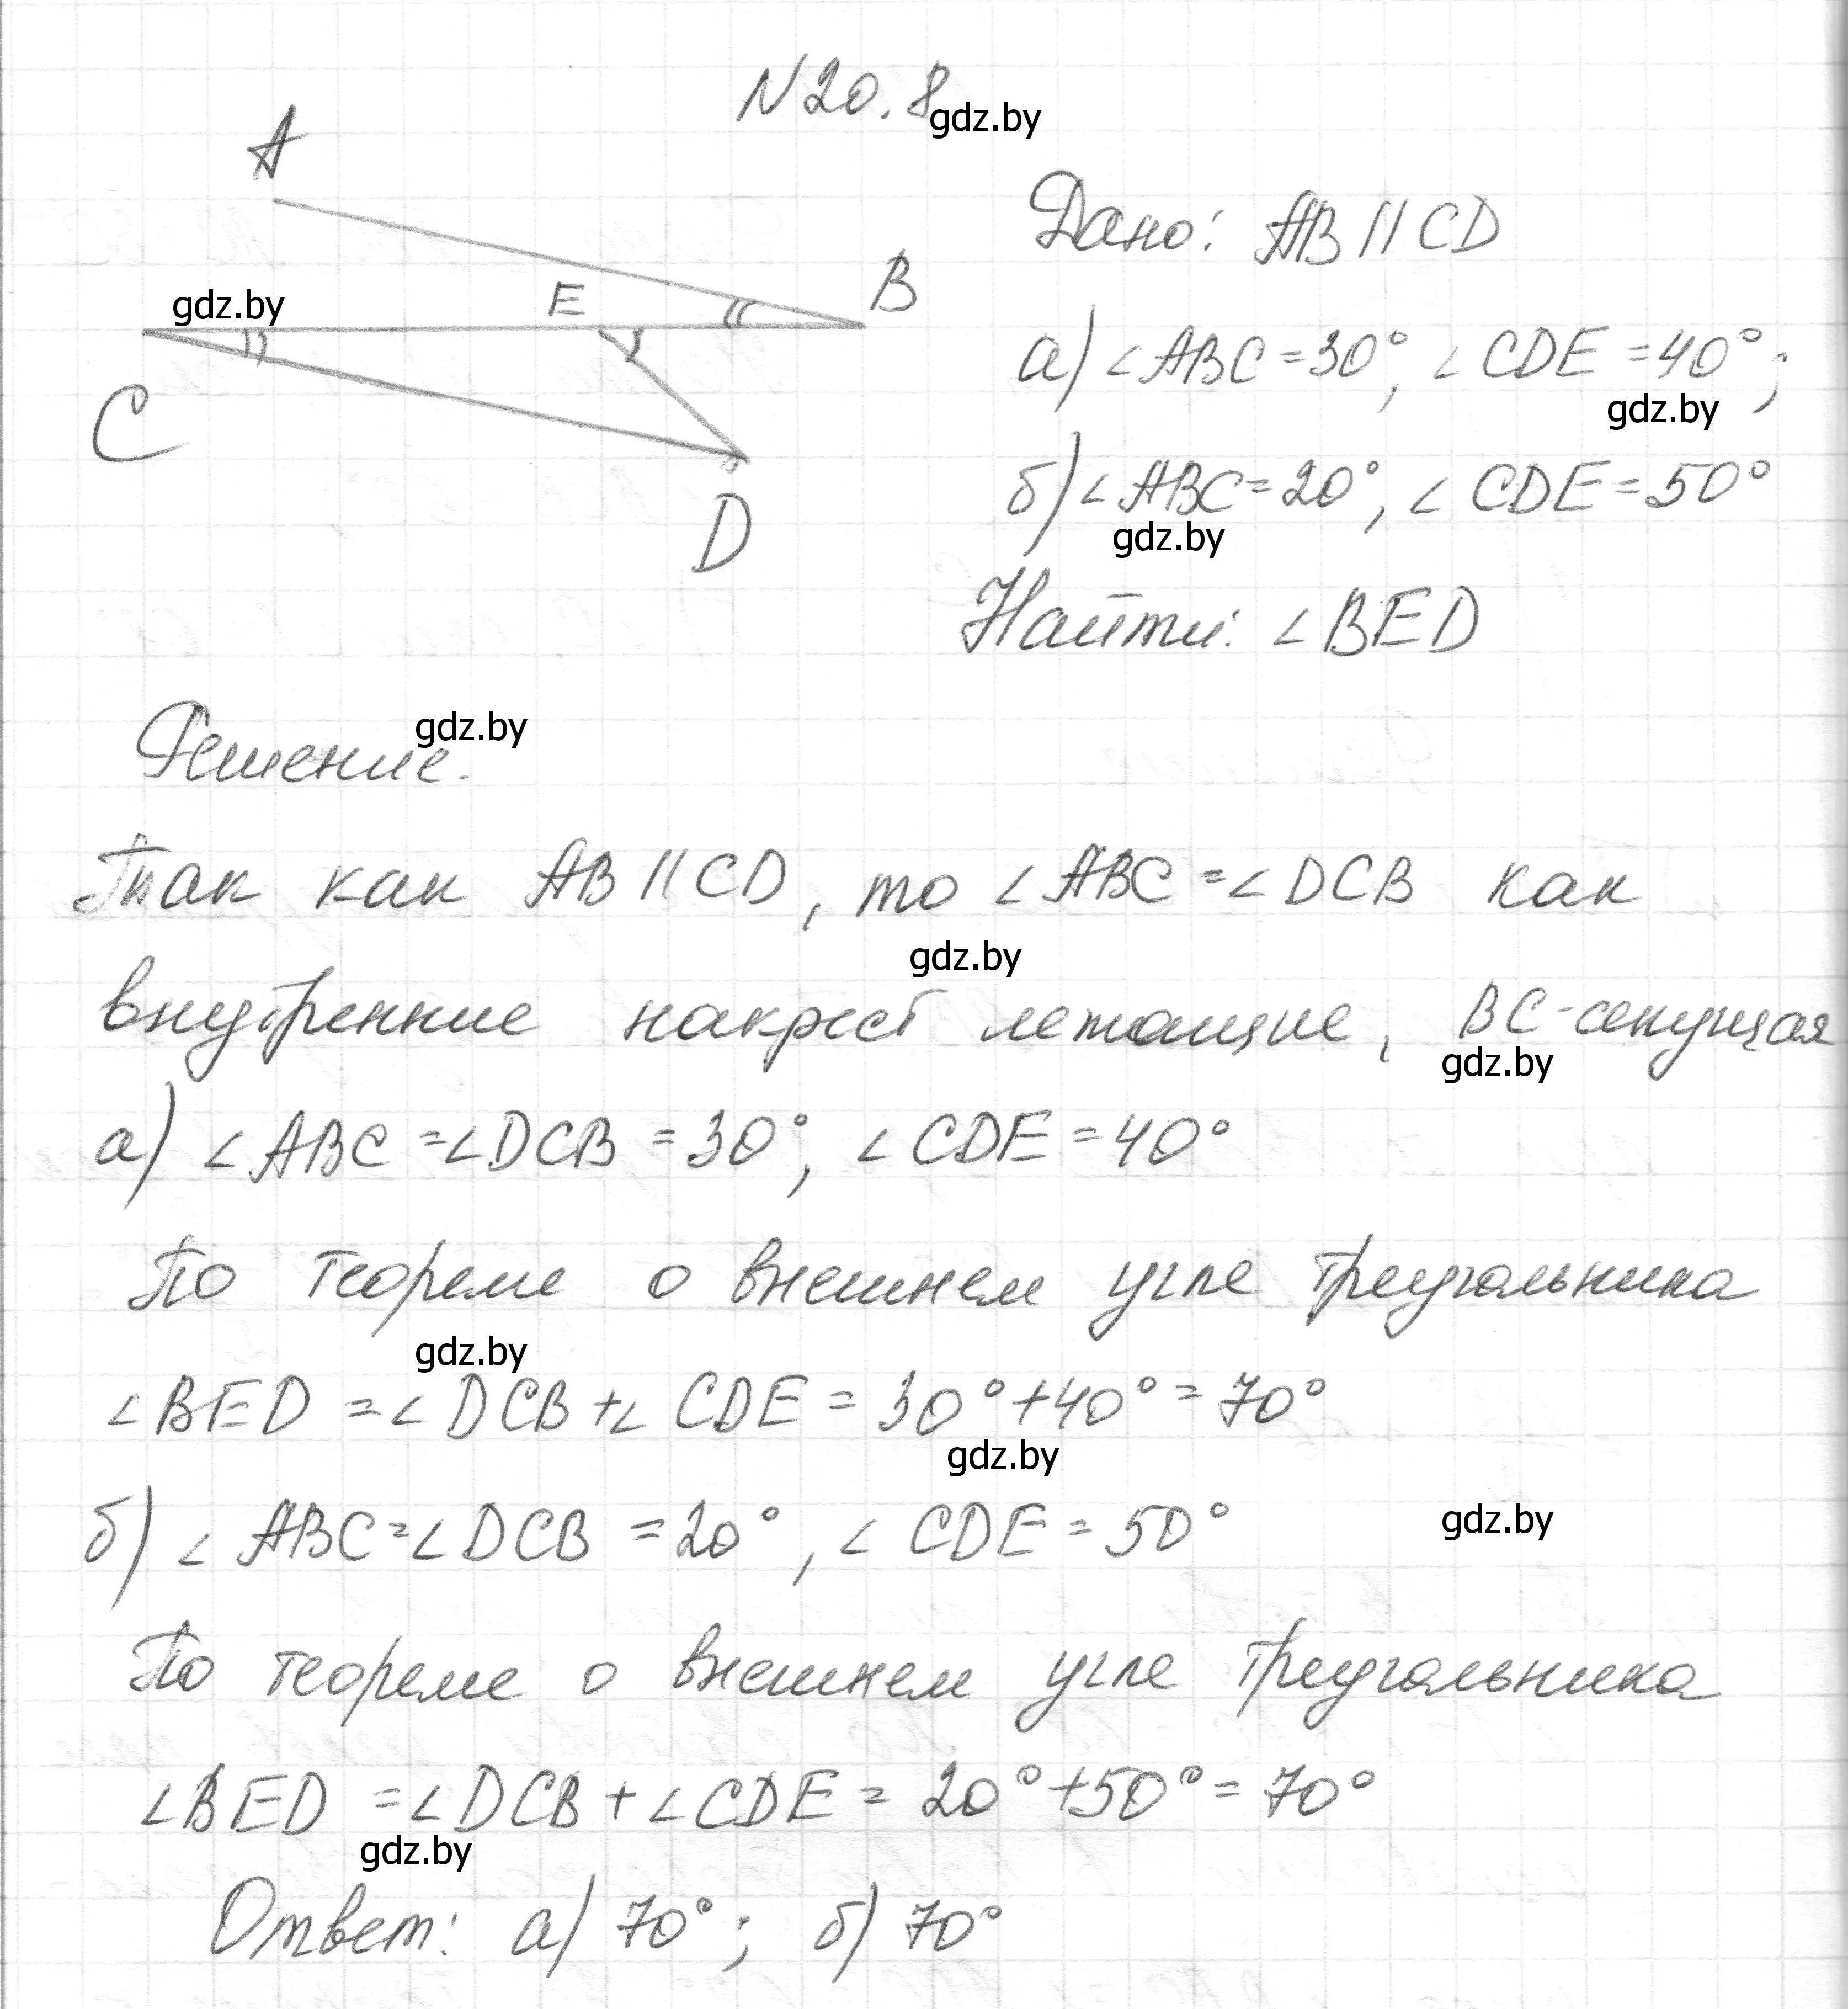 N 20.8
gdz.by
A
B
E
gdz.by
C
D
Дано: AB || CD
а) ∠ABC = 30°, ∠CDE = 40°;
gdz.by
б) ∠ABC = 20°, ∠CDE = 50°
gdz.by
Найти: ∠BED
Решение.
gdz.by
Так как AB || CD, то ∠ABC = ∠DCB как
gdz.by
внутренние накрест лежащие, BC - секущая
gdz.by
а) ∠ABC = ∠DCB = 30°, ∠CDE = 40°
По теореме о внешнем угле треугольника
gdz.by
∠BED = ∠DCB + ∠CDE = 30° + 40° = 70°
gdz.by
б) ∠ABC = ∠DCB = 20°, ∠CDE = 50°
gdz.by
По теореме о внешнем угле треугольника
∠BED = ∠DCB + ∠CDE = 20° + 50° = 70°
gdz.by
Ответ: а) 70°; б) 70°